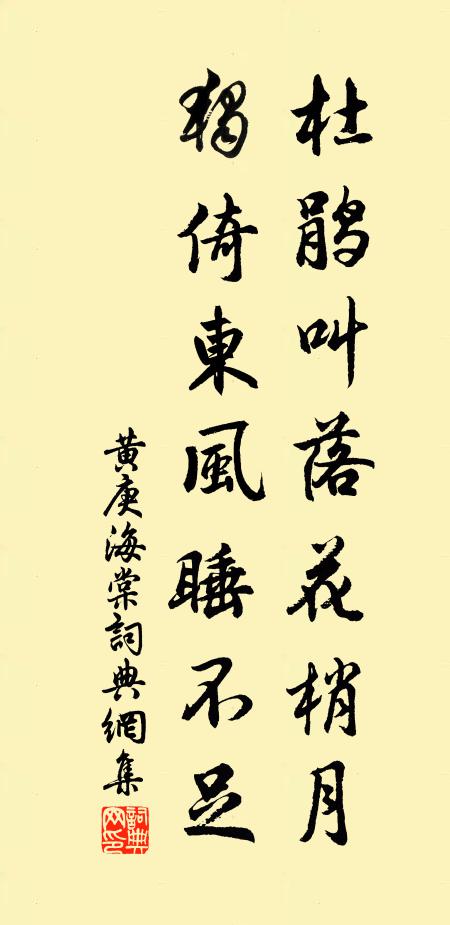 杜鹃叫落花梢月
獨倚東風睡不足
黄庚海棠詞典網集
詞典网印